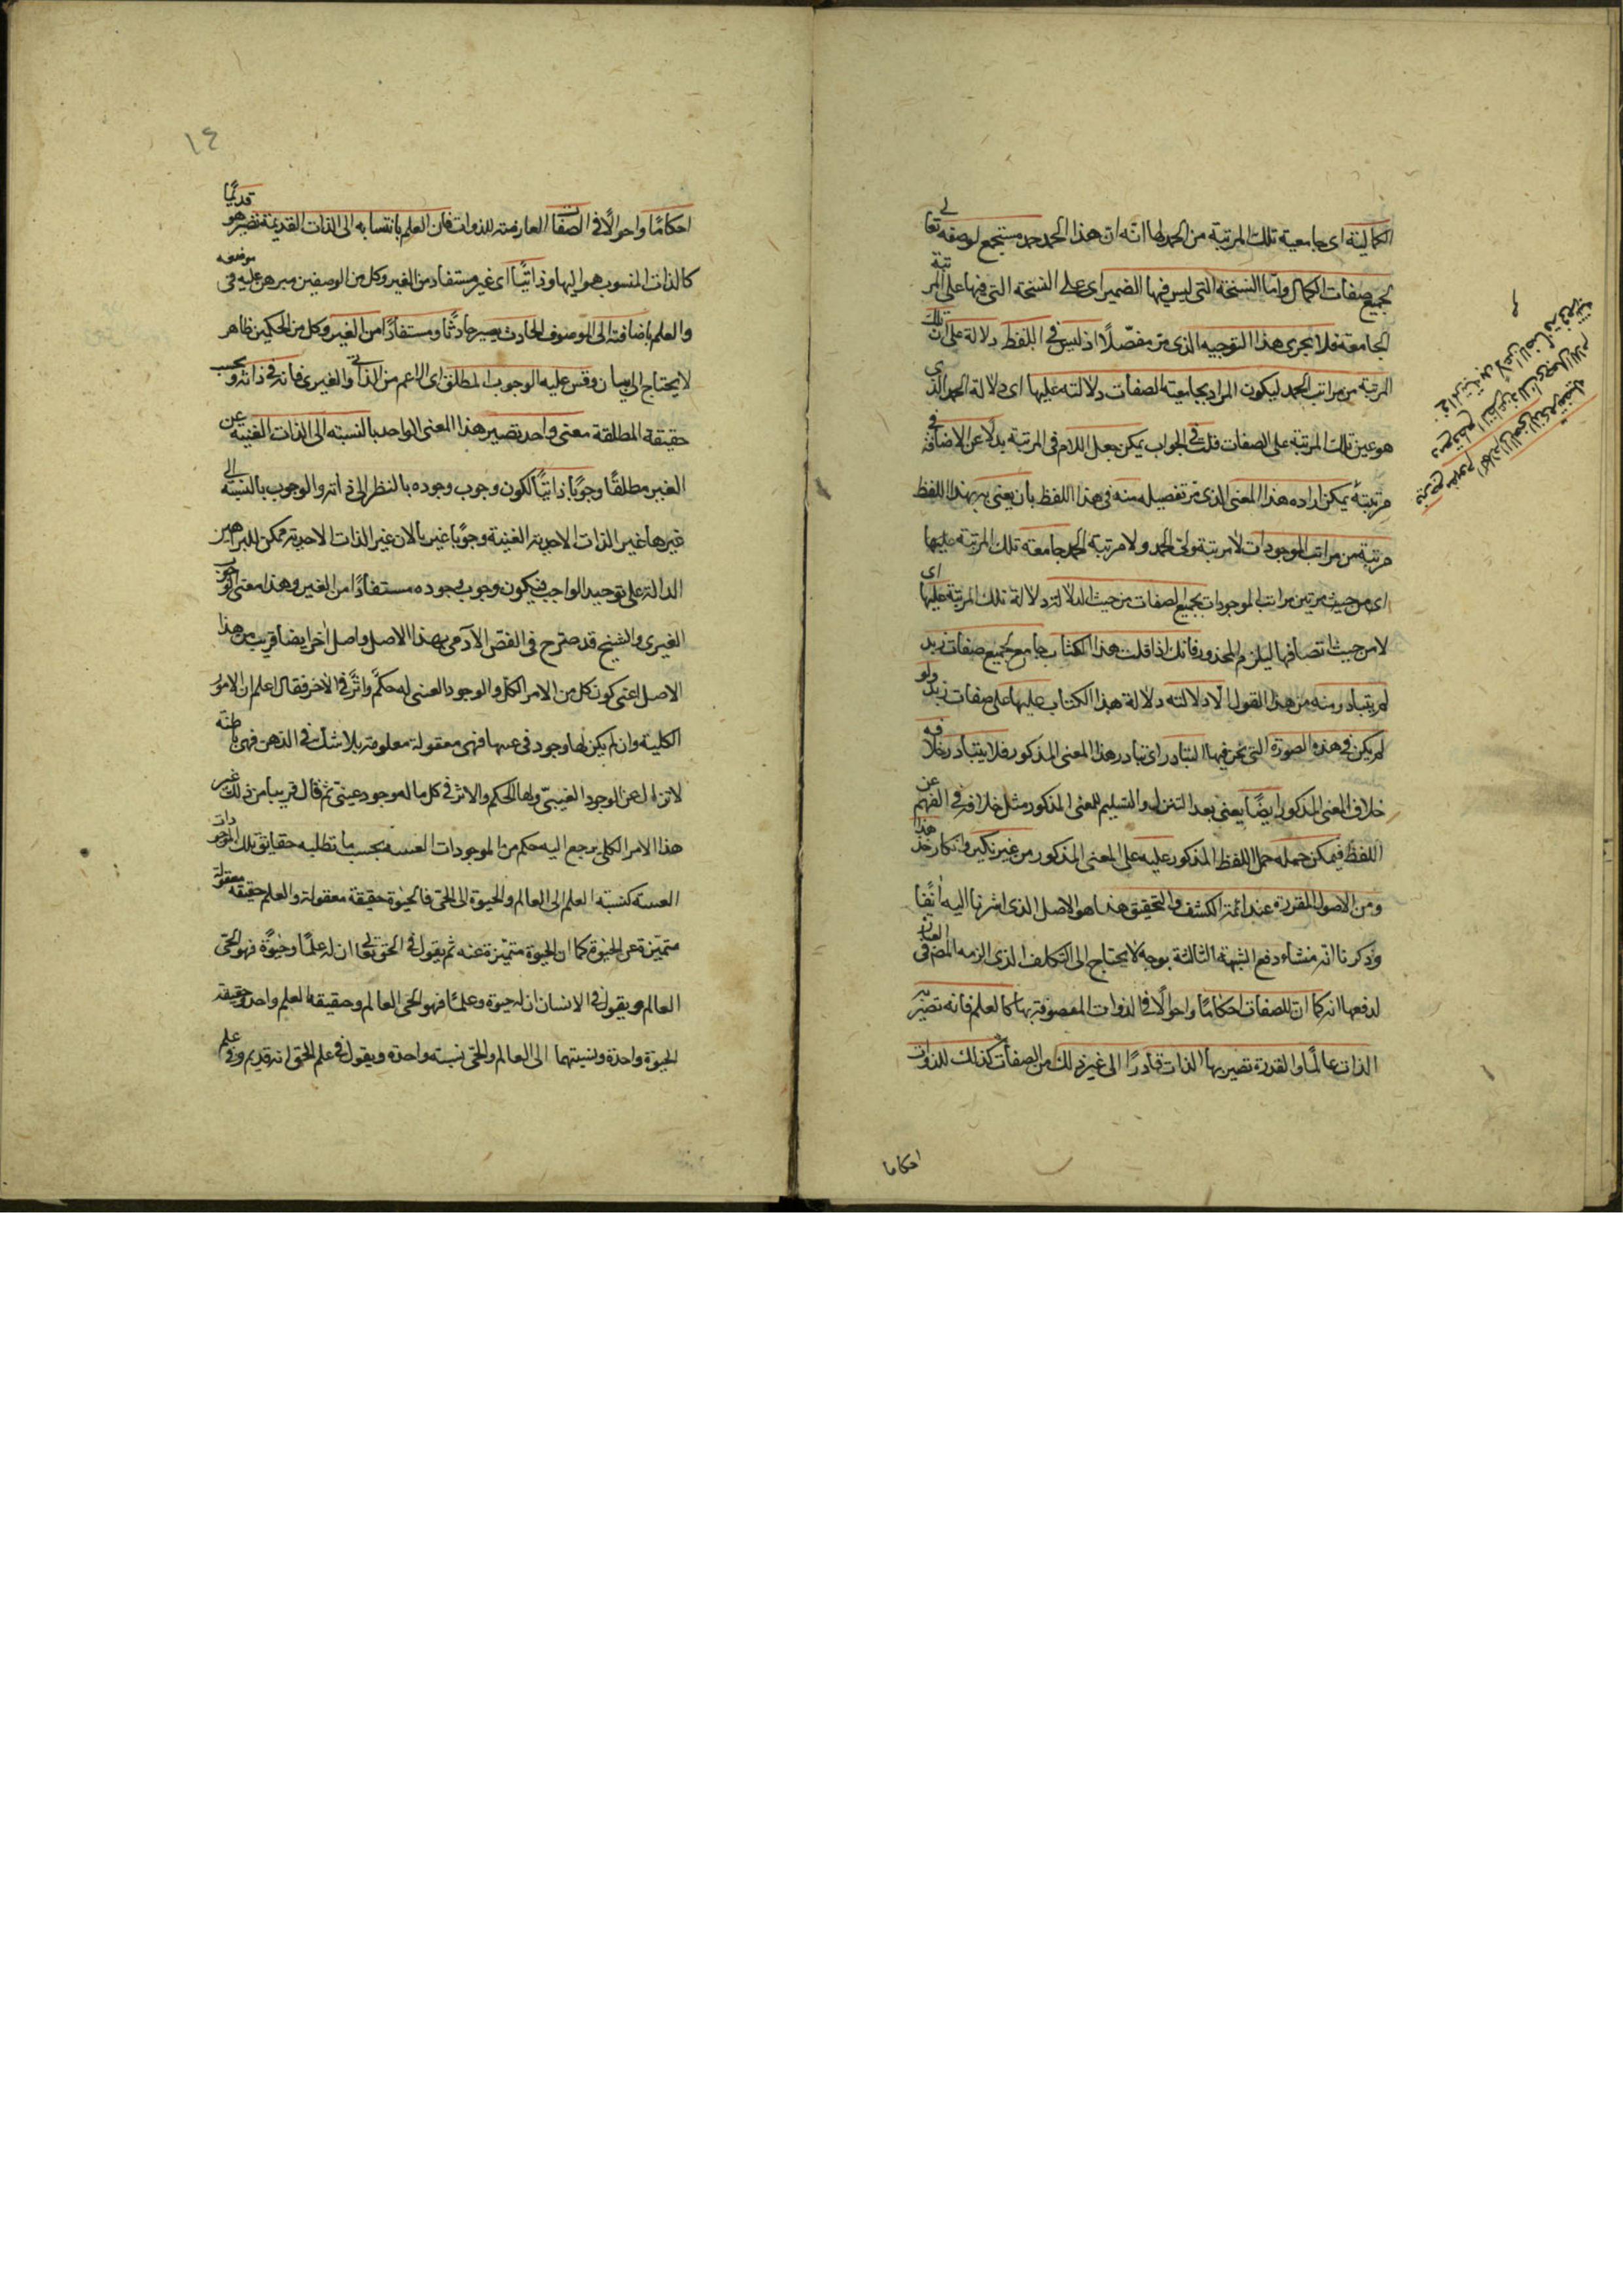 الكمالية اى جامعية تلك المرتبة من الحمد لها انّه ان هذا الحمد حمد مستجمع لوصفه تعالى
بجميع صفات الكمال وامّا النسخة التى ليس فيها الضمير اى على النسخة التى فيها على المرتبة
الجامعة فلا يجرى هذا التوجيه الذى مرّ مفصّلًا اذ ليس فى اللفظ دلالة على ان تلك
المرتبة من مراتب الحمد ليكون المراد بجامعيته الصفات دلالته عليها اى دلالة الحمد الذى
هو عين تلك المرتبة على الصفات قلت فى الجواب يمكن جعل اللام فى المرتبة بدلًا عن الاضافة فى
مرتبته يمكن اراده هذا المعنى الذى مرّ تفصيله منه فى هذا اللفظ بان يعنى به بهذا اللفظ
مرتبة من مراتب الموجودات لا مرتبة مولى الحمد ولا مرتبة الحمد جامعة تلك المرتبة عليها
اى من حيث مرتبة من مراتب الموجودات بجميع الصفات من حيث الدلالة دلالة تلك المرتبة عليها اى
لا من حيث اتصافها ليلزم المحذور فانك اذا قلت هذا الكتاب جامع لجميع صفات زيد
لم يتبادر منه من هذا القول الّا دلالته دلالة هذا الكتاب عليها على صفات زيد ولو
لم يكن فى هذه الصورة التى نحن فيها التبادر اى تبادر هذا المعنى المذكور فلا يتبادر خلافه
خلاف المعنى المذكور ايضًا يعنى بعد التنزل والتسليم للمعنى المذكور مثل خلافه فى الفهم عن
اللفظ فيمكن حمله حمل اللفظ المذكور عليه على المعنى المذكور من غير نكير وانكار خذ هذا
ومن الاصول المقررة عند ائمة الكشف والتحقيق هذا هو الاصل الذى اشرنا اليه انفًا
وذكرنا انّه منشاء دفع الشبهة الثالثة بوجه لا يحتاج الى التكلف الذى الزمه المصنف
لدفعها انه كما ان للصفات احكامًا واحوالًا فى الذوات الموصوفة بها كالعلم فانه تصيّر به
الذات عالمًا والقدرة تصير بها الذات قادرًا الى غير ذلك من الصفات كذلك للذوات
احكاما
١٤
احكامًا واحوالًا فى الصفات العارضة للذوات فان العلم بانتسابه الى الذات القديمة تصير هو قديمًا
كالذات المنسوب هو اليها وذاتيًّا اى غير مستفاد من الغير وكل من الوصفين مبرهن عليه فى موضعه
والعلم باضافته الى الموصوف الحادث يصير حادثًا ومستفادًا من الغير وكل من الحكمين ظاهر
لا يحتاج الى بيان وقس عليه الوجوب المطلق اى الاعم من الذاتى والغيرى فانه فى ذاته وبحسب
حقيقة المطلقة معنى واحد تصير هذا المعنى الواحد بالنسبته الى الذات الغنيه عن
الغير مطلقًا وجوبًا ذاتيًّا لكون وجوب وجوده بالنظر الى ذاته والوجوب بالنسبة الى
غيرها غير الذات الاحدية الغنية وجوبًا غيريا لان غير الذات الاحدية ممكن للبراهين
الدالة على توحيد الواجب فيكون وجوب وجوده مستفادًا من الغير وهذا معنى الوجوب
الغيرى والشيخ قد صرّح فى الفصّ الآدمى بهذا الاصل واصل اخر ايضا قريب من هذا
الاصل اعنى كون كل من الامر الكلى والوجود العينى له حكمٌ واثرٌ فى الاخر فقال اعلم ان الامور
الكلية وان لم يكن لها وجود فى عينها فهى معقولة معلومة بلا شك فى الذهن فهى باطنة
لا تزال عن الوجود الغيبىّ ولها الحكم والاثر فى كل ما له وجود عينىّ ثم قال قريبا من ذلك غير
هذا الامر الكلى يرجع اليه حكم من الموجودات العينيه بحسب ما تطلبه حقايق تلك الموجودات
العينية كنسبة العلم الى العالم والحيوة الى الحى فالحيوة حقيقة معقولة والعلم حقيقة معقولة
متميّزة عن الحيوة كما ان الحيوة متميّزة عنه ثم يقول فى الحق تعالى ان له علمًا وحيوةً فهو الحىّ
العالم ويقول فى الانسان ان له حيوة وعلمًا فهو الحى العالم وحقيقه العلم واحدة وحقيقة
الحيوة واحدة ونسبتهما الى العالم والحىّ نسبته واحدة ويقول فى علم الحق انه قديم وفى علم